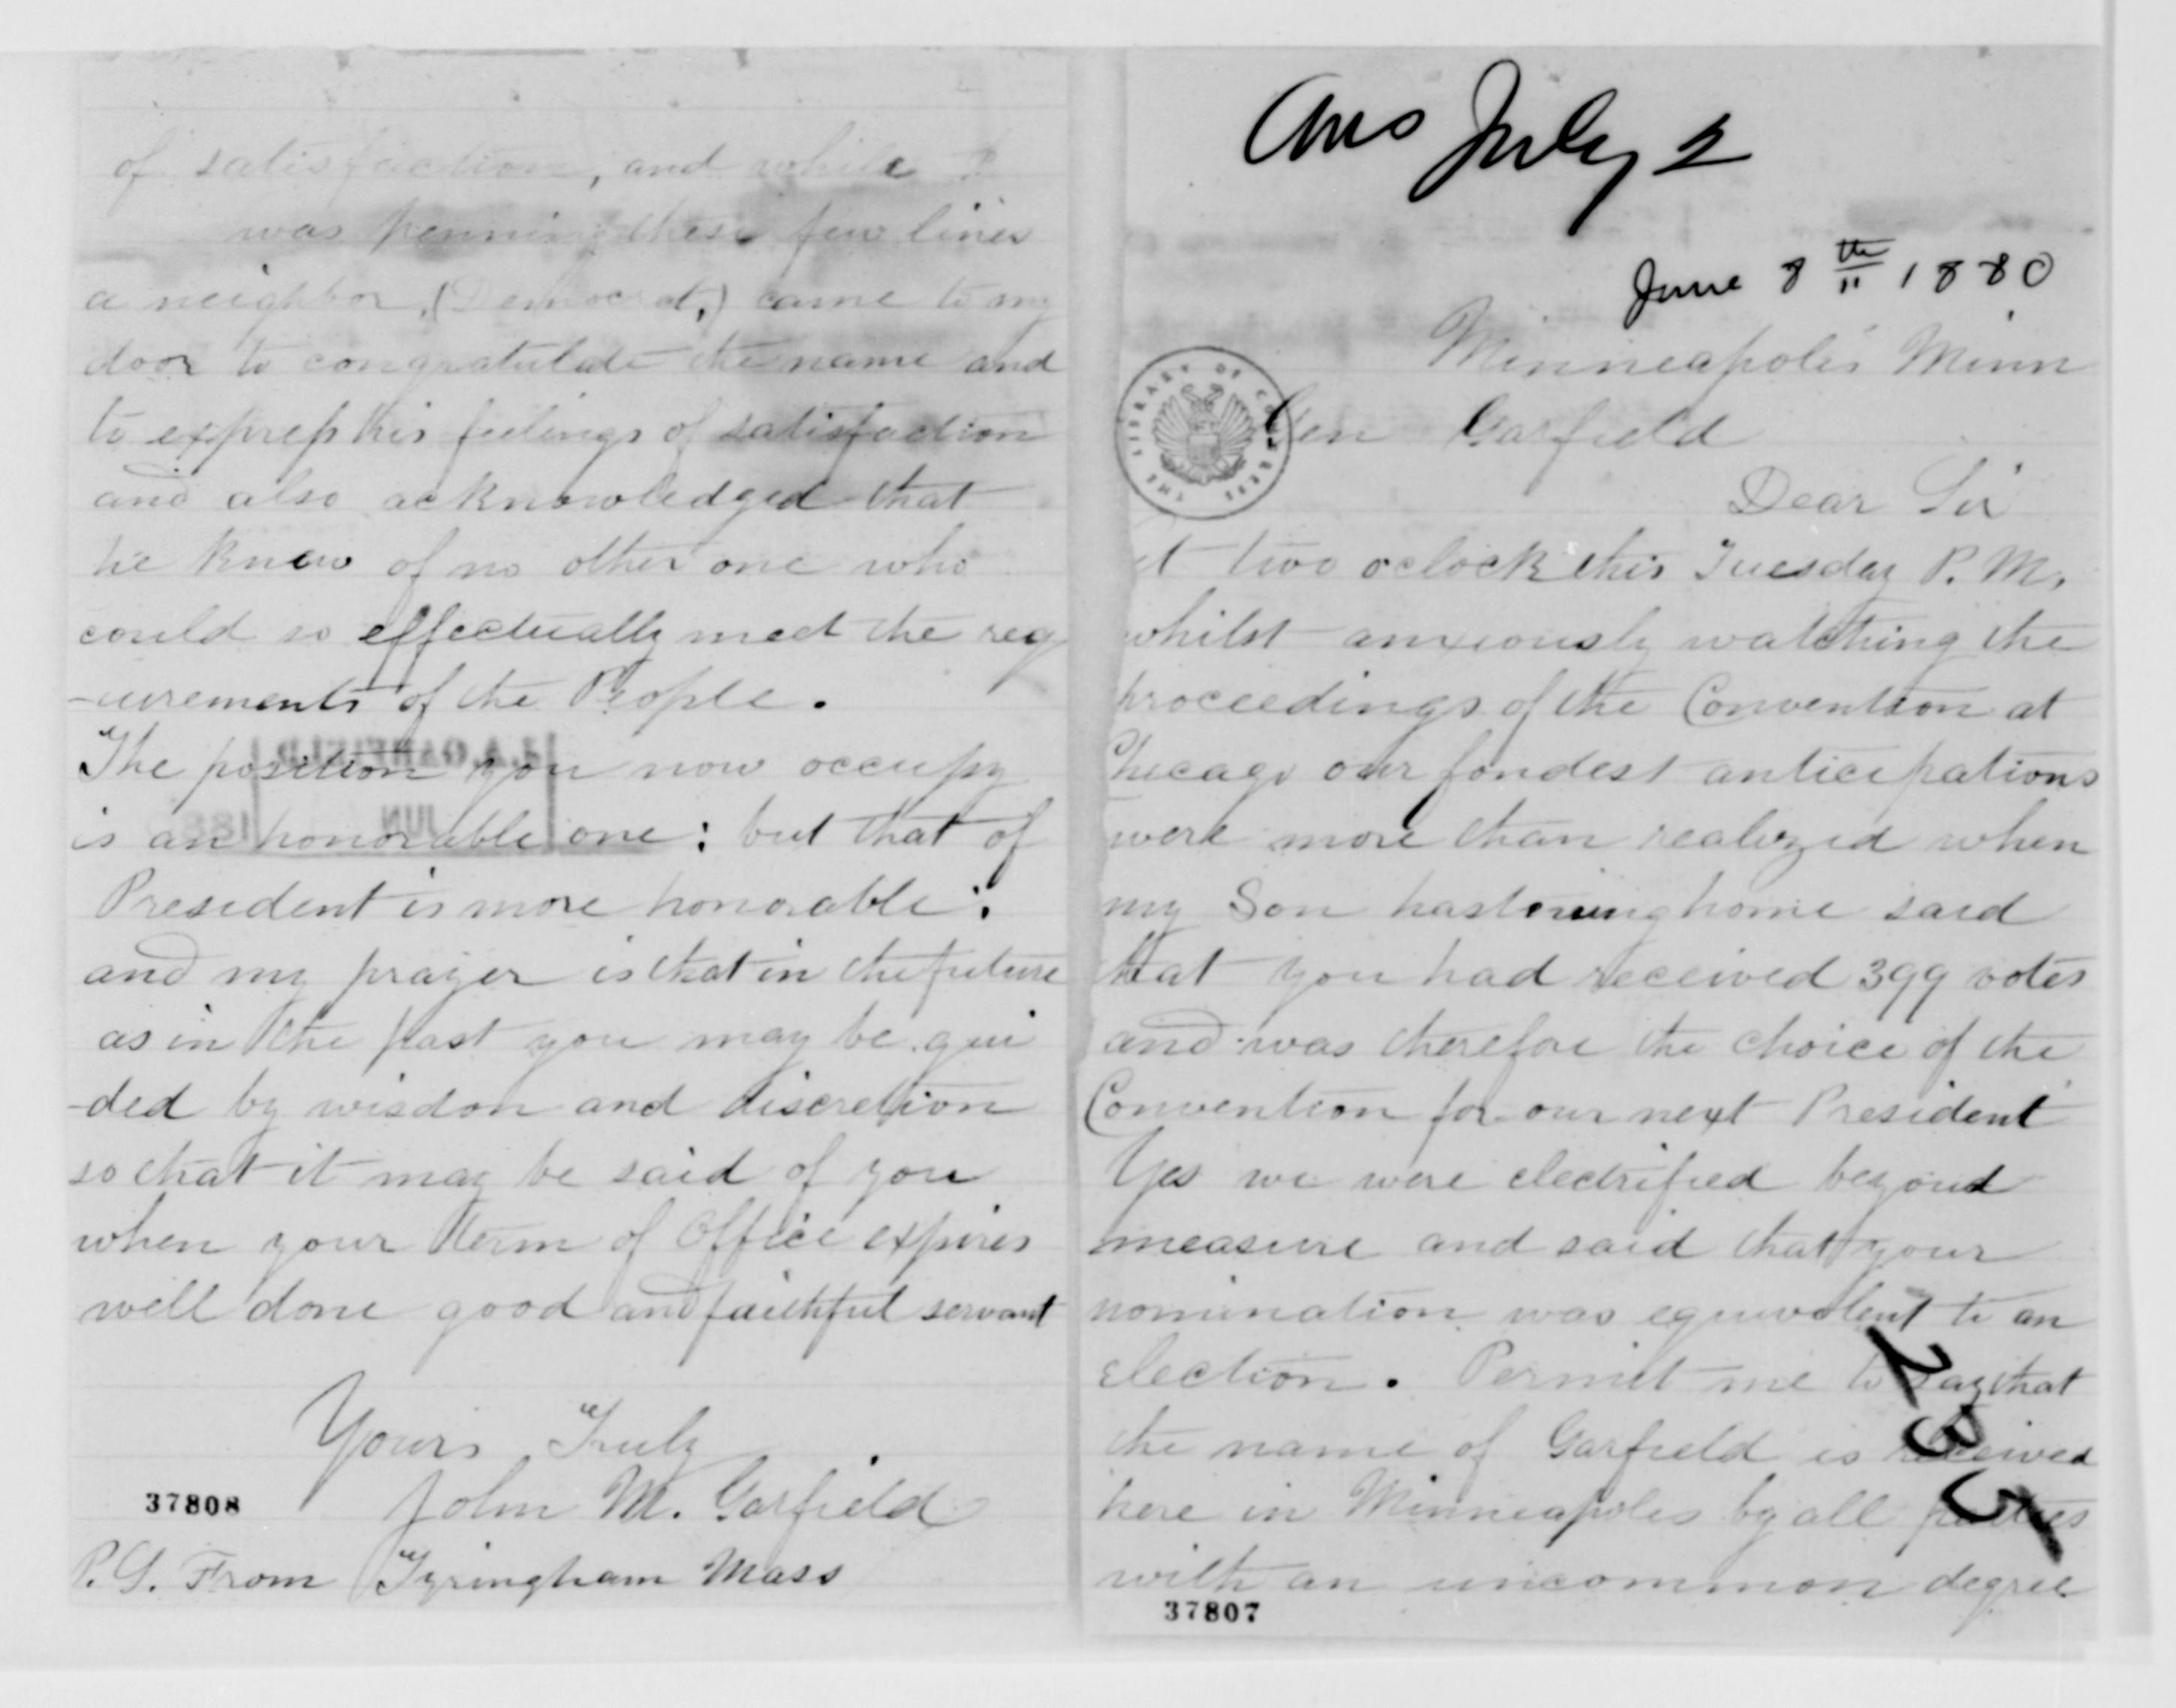 Ans July 2
June 8th 1880
Minneapolis Minn
THE LIBRARY OF CONGRESS
Gen Garfield
Dear Sir
at two oclock this Tuesday P. M.
whilst anxiously watching the
proceedings of the Convention at
Chicago our fondest anticipations
were more than realized when
my Son hastening home said
that you had received 399 votes
and was therefore the choice of the
Convention for our next President
Yes we were electrified beyond
measure and said that your
nomination was equivalent to an
election. Permit me to say that
the name of Garfield is received
here in Minneapolis by all parties
with an uncommon degree
37807
of satisfaction, and while I
was penning these few lines
a neighbor, (Democrat,) came to my
door to congratulate the name and
to express his feelings of satisfaction
and also acknowledged that
he knew of no other one who
could so effectually meet the req
-uirements of the People.
The position you now occupy
is an honorable one: but that of
President is more honorable:
and my prayer is that in the future
as in the past you may be gui
-ded by wisdon and discretion
so that it may be said of you
when your term of Office expires
well done good and faithful servant
Yours Truly
John M. Garfield
37808
P.S. From Tyringham Mass